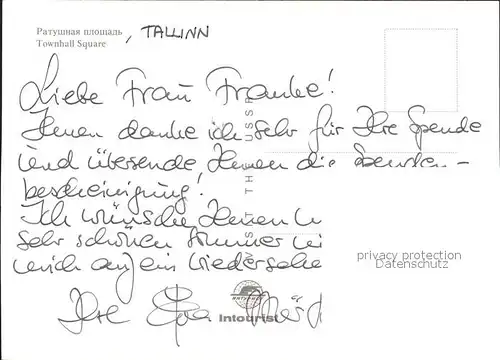 Ратушная площадь
Townhall Square, TALLINN
Liebe Frau Franke!
Ihnen danke ich sehr für Ihre Spende
und übersende Ihnen die Spenden-
bescheinigung!
Ich wünsche Ihnen
sehr schönen Sommer
mich auf ein Wiedersehe
Ihre Eva
Intourist
privacy protection
Datenschutz